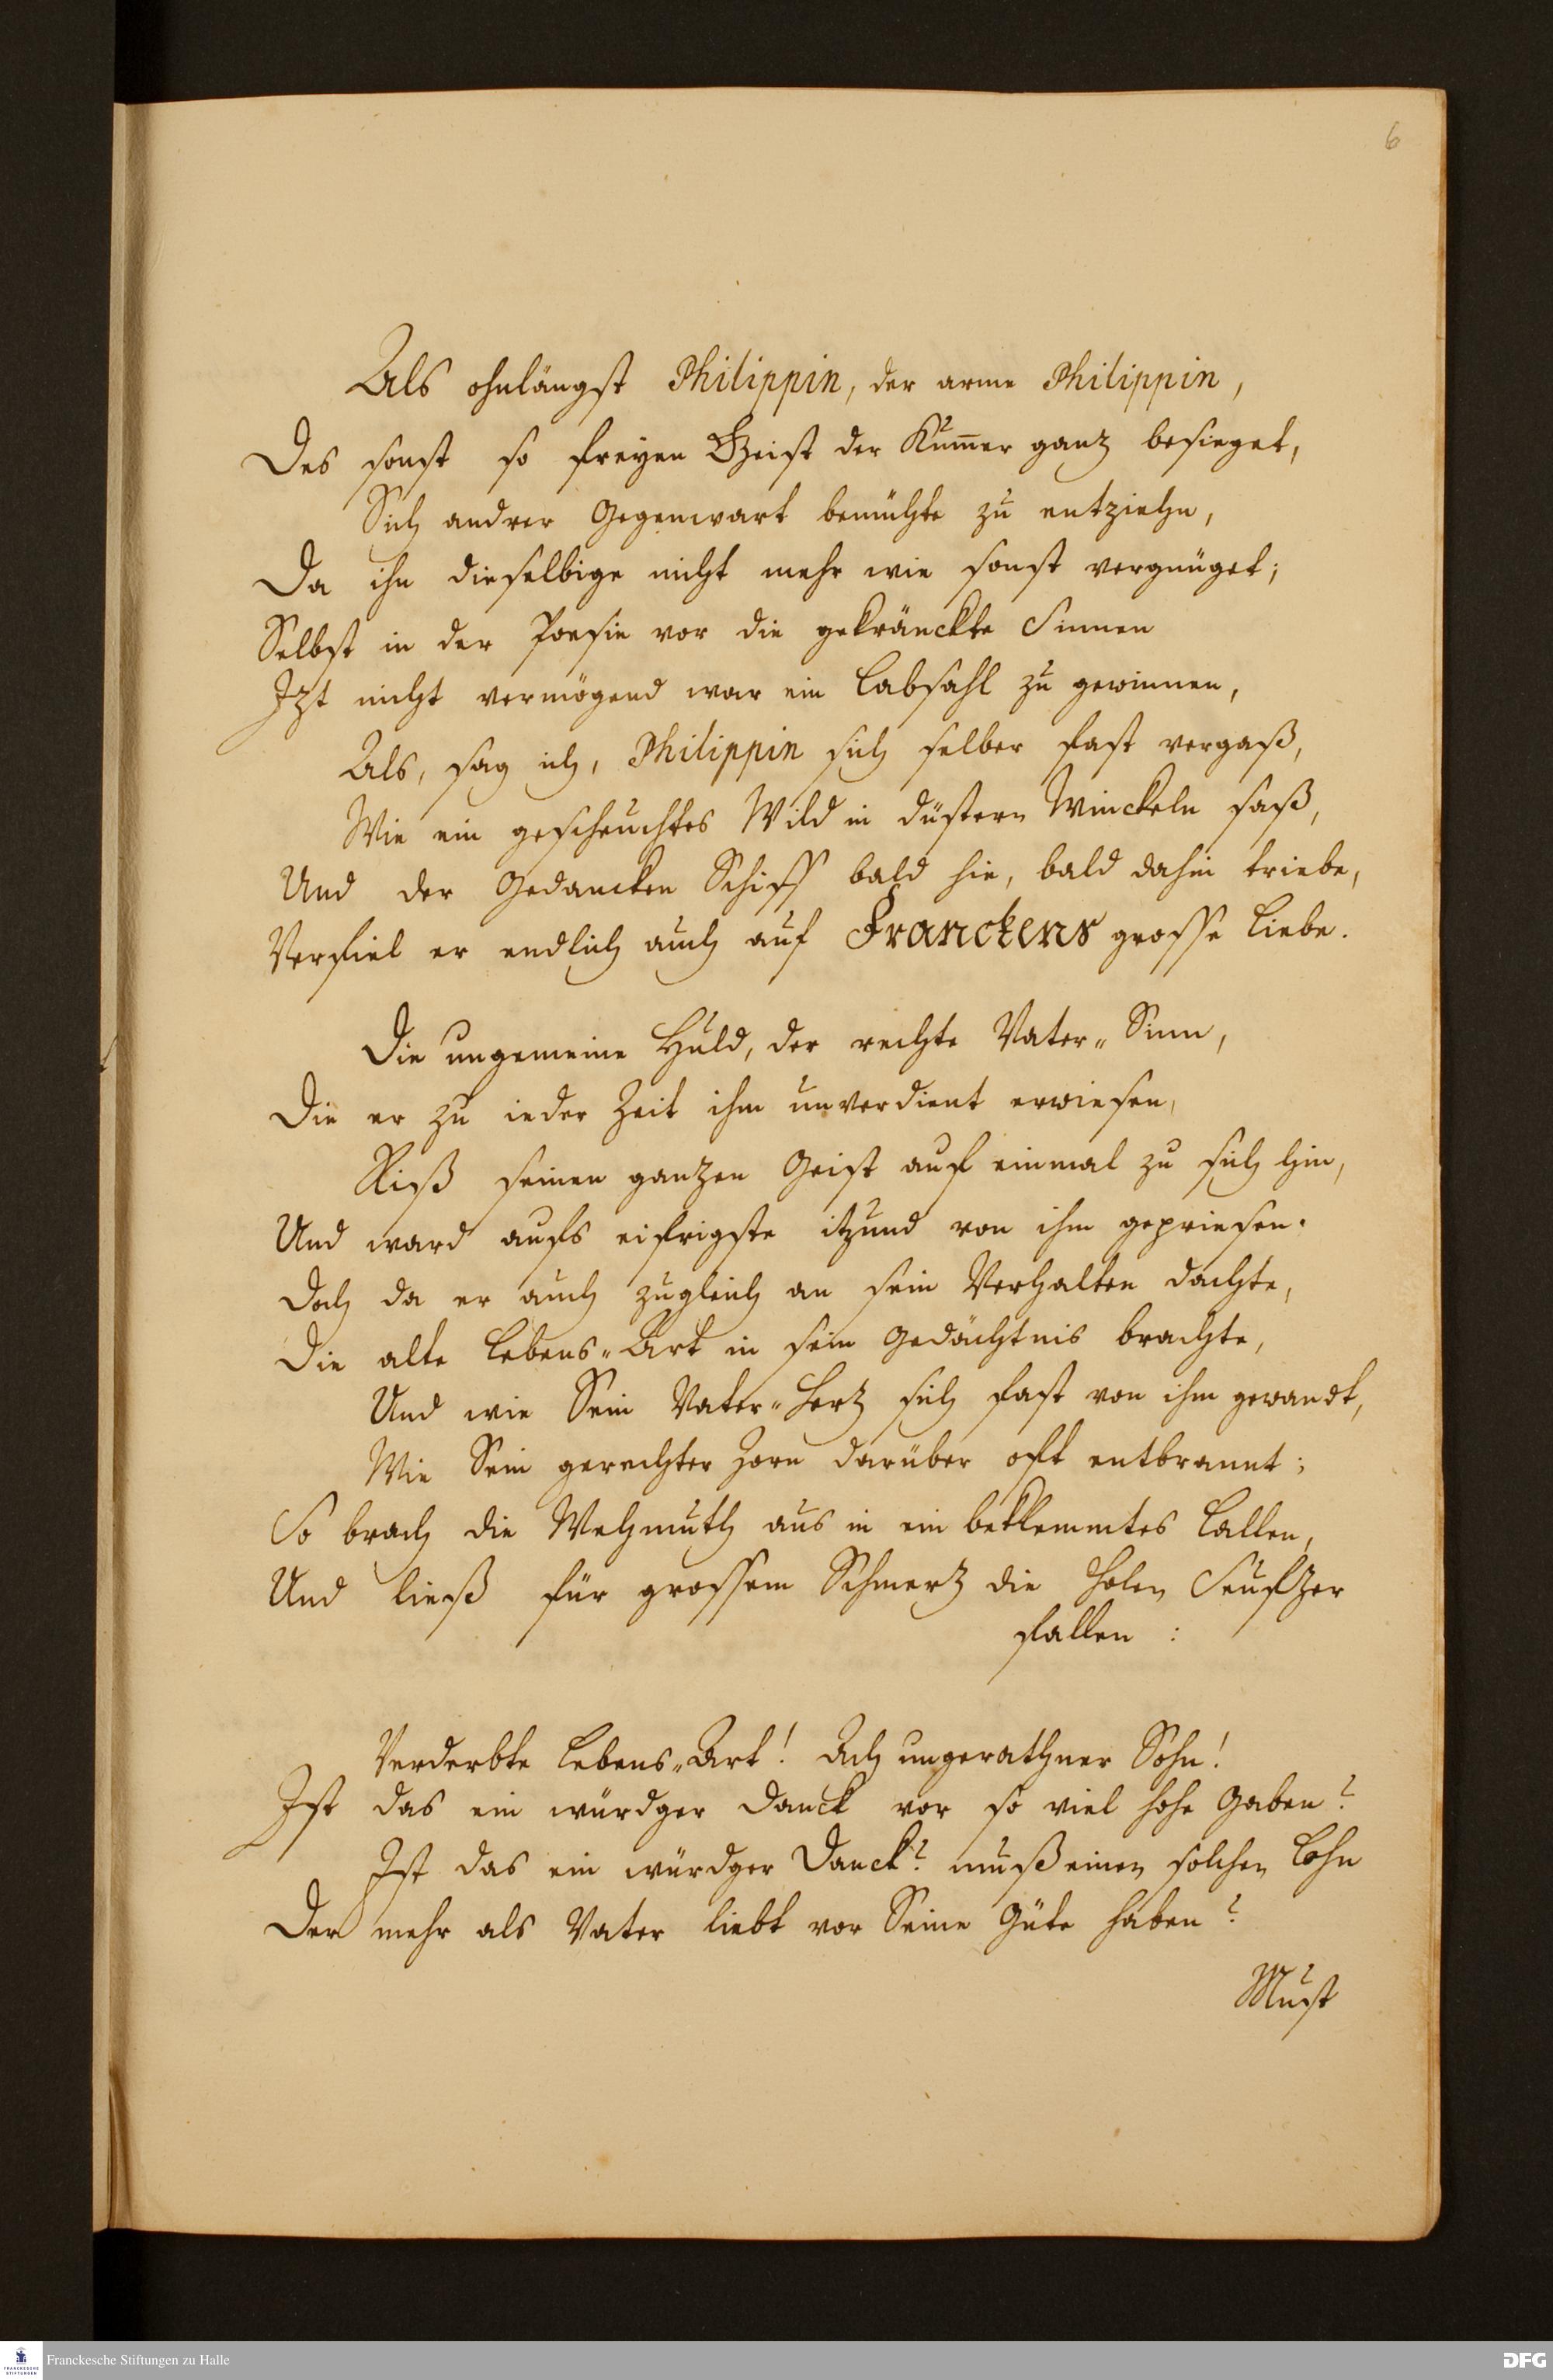 6
Als ohnlängst Philippin, der arme Philippin,
Des sonst so freyen Geist der Kum̅er ganz besieget,
Sich andrer Gegenwart bemühte zu entziehn,
Da ihn dieselbige nicht mehr wie sonst vergnüget;
Selbst in der Poesie vor die gekränckte Sinnen
Izt nicht vermögend war ein Labsahl zu gewinnen,
Als, sag ich, Philippin sich selber fast vergaß,
Wie ein gescheuchtes Wild in düstern Winckeln saß,
Und der Gedancken Schiff bald hie, bald dahin triebe,
Verfiel er endlich auch auf Franckens grosse Liebe.
Die ungemeine Huld, der rechte Vater-Sinn,
Die er zu ieder Zeit ihm unverdient erwiesen,
Riß seinen ganzen Geist auf einmal zu sich hin,
Und ward aufs eifrigste itzund von ihm gepriesen.
Doch da er auch zugleich an sein Verhalten dachte,
Die alte Lebens-Art in sein Gedächtnis brachte,
Und wie Sein Vater-Hertz sich fast von ihm gewandt,
Wie Sein gerechter Zorn darüber oft entbrannt;
So brach die Wehmuth aus in ein beklemmtes Lallen,
Und ließ für grossem Schmertz die holen Seufzer
fallen:
Verderbte Lebens-Art! Ach ungerathner Sohn!
Ist das ein würdger Danck vor so viel hohe Gaben?
Ist das ein würdger Danck? muß einen solchen Lohn
Der mehr als Vater liebt vor Seine Güte haben?
Must
Franckesche Stiftungen zu Halle
FRANCKESCHE STIFTUNGEN
DFG